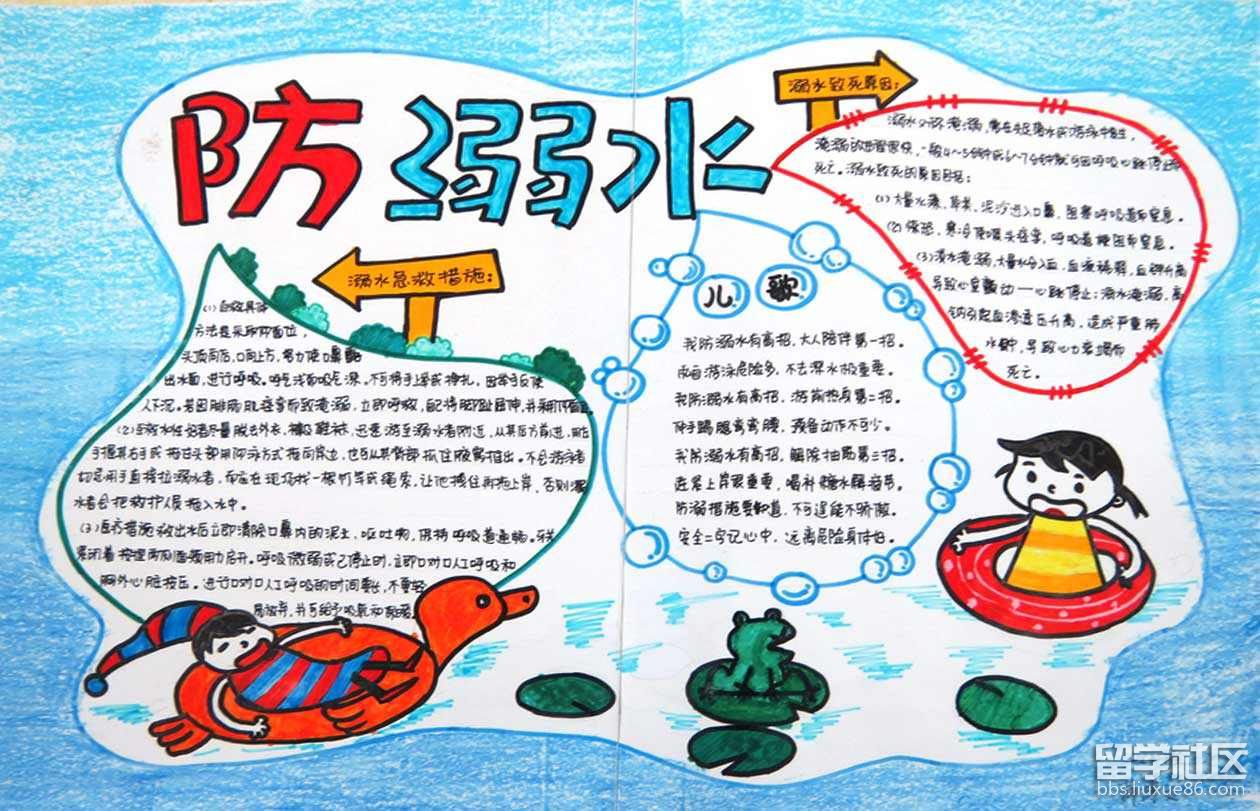 防溺水
溺水致死原因：
溺水又称淹溺，常在失足落水或游泳中发生，
淹溺的进程很快，一般4～5分钟或6～7分钟就可因呼吸心跳停止而
死亡。溺水致死的原因包括：
(1)大量水藻、草类、泥沙进入口鼻，阻塞呼吸道而窒息。
(2)惊恐、寒冷使喉头痉挛，呼吸道梗阻而窒息。
(3)淡水淹溺，大量水分入血，血液稀释，血钾升高
导致心室颤动——心跳停止；海水淹溺，高
钠引起血渗透压升高，造成严重肺
水肿，导致心力衰竭而
死亡。
溺水急救措施：
(1)自救具体
方法是采取仰面位，
头顶向后，口向上方，努力使口鼻
出水面，进行呼吸。呼气浅而吸气深。不可将手上举或挣扎，因举手反使
人下沉。若因腓肠肌痉挛而致淹溺，立即呼救，
(2)
手握其右手或拖住头部用仰泳方式拖向岸边，也可从其背部抓住腋窝推出。不会游泳者
切忌用手直接拉溺水者，而应在现场找一根竹竿或绳索，让他抓住再拖上岸，否则溺
水者会把救护人员拖入水中。
(3)医疗措施 救出水后立即清除口鼻内的泥土，呕吐物，保持呼吸道通畅。牙关
紧闭者按捏两侧面颊用力启开。呼吸微弱或已停止时，立即口对口人工呼吸和
胸外心脏按压。进行口对口人工呼吸的时间要长，不要轻
易放弃，并可给予吸氧和保暖。
儿歌
我防溺水有高招，大人陪伴第一招。
私自游泳危险多，不去深水极重要。
我防溺水有高招，游前热身第二招。
伸手踢腿弯弯腰，预备动作不可少。
我防溺水有高招，解除抽筋第三招。
赶紧上岸最重要，喝补糖水解苦节。
防溺措施要知道，不可逞能不骄傲。
安全二字记心中，远离危险身体怕。
留学社区
bbs.liuxue86.com